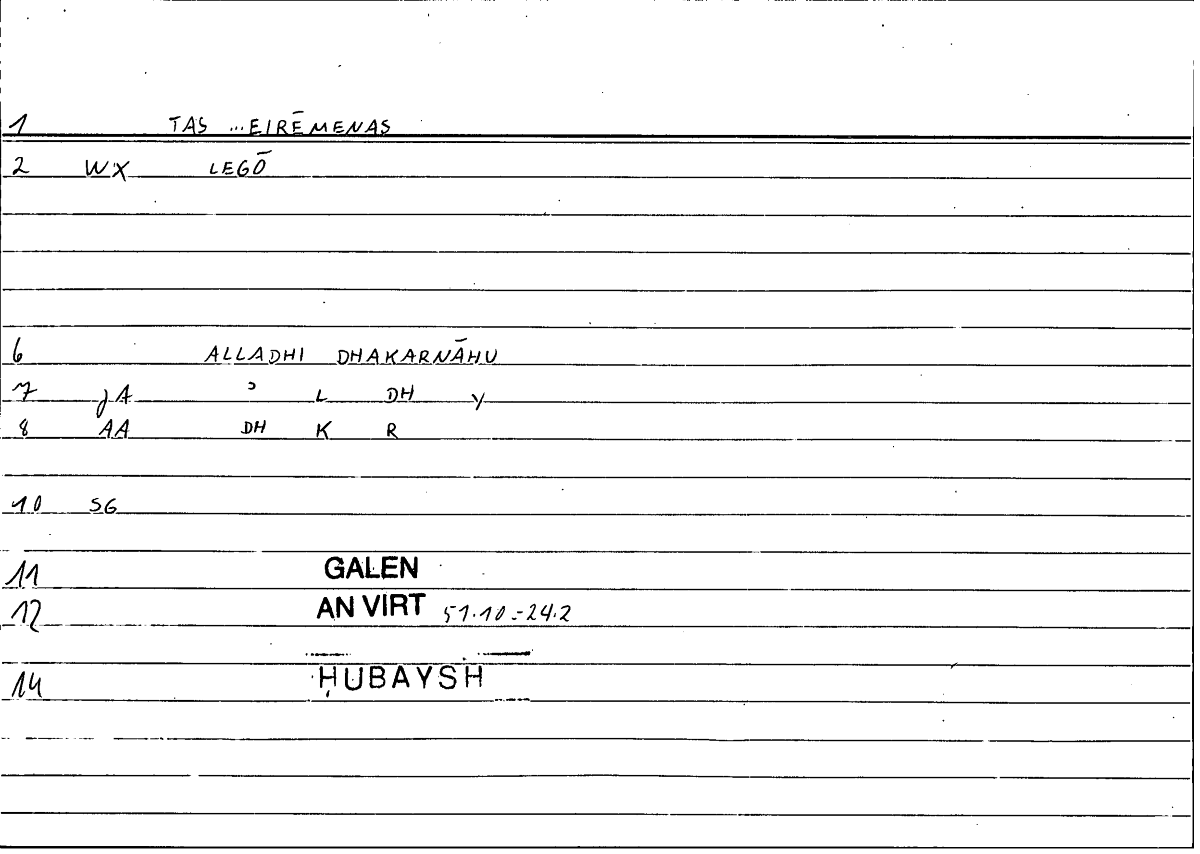 1 TAS ...EIRĒMENAS
2 WX LEGŌ
6 ALLADHI DHAKARNĀHU
7 JA ʾ L DH Y
8 AA DH K R
10 SG
11 GALEN
12 AN VIRT 51.10.-24.2
14 ḤUBAYSH